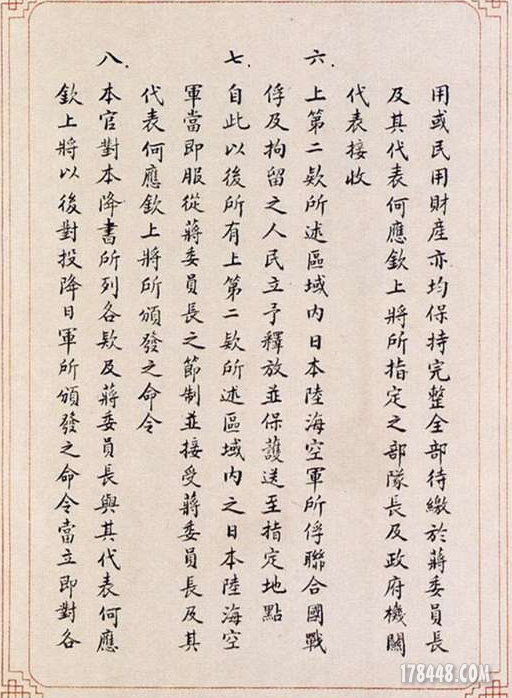 用或民用財產亦均保持完整全部待繳於蔣委員長
及其代表何應欽上將所指定之部隊長及政府機關
代表接收
六、上第二款所述區域內日本陸海空軍所俘聯合國戰
俘及拘留之人民立予釋放並保護送至指定地點
七、自此以後所有上第二款所述區域內之日本陸海空
軍當即服從蔣委員長之節制並接受蔣委員長及其
代表何應欽上將所頒發之命令
八、本官對本降書所列各款及蔣委員長與其代表何應
欽上將以後對投降日軍所頒發之命令當立即對各
178448.COM